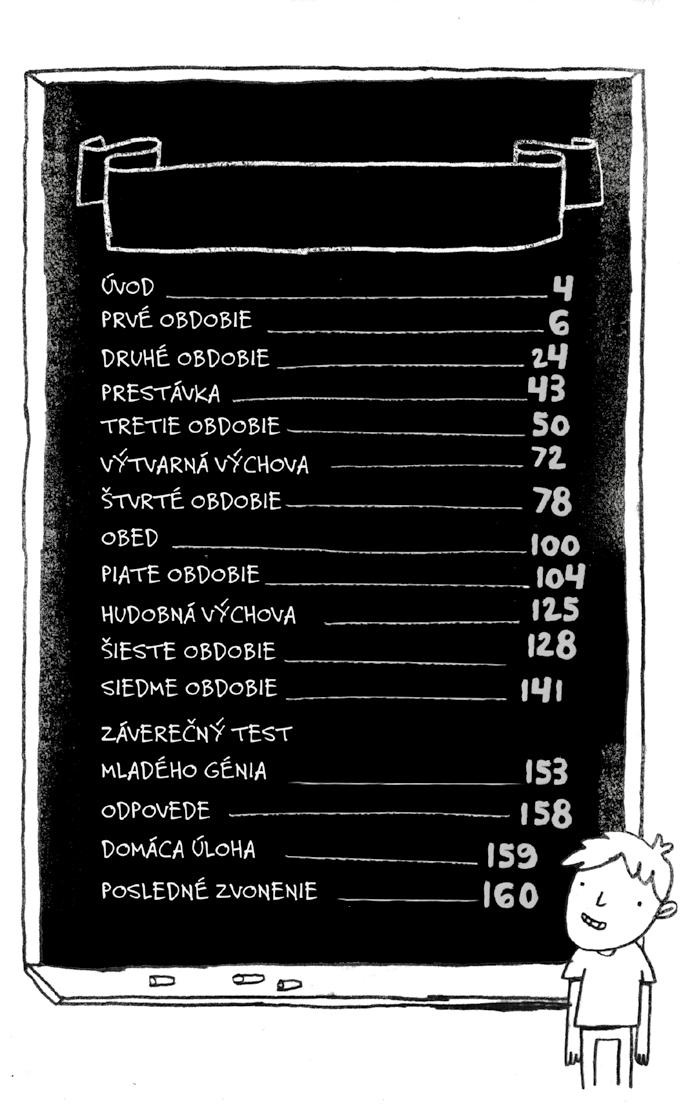 ÚVOD 4
PRVÉ OBDOBIE 6
DRUHÉ OBDOBIE 24
PRESTÁVKA 43
TRETIE OBDOBIE 50
VÝTVARNÁ VÝCHOVA 72
ŠTVRTÉ OBDOBIE 78
OBED 100
PIATE OBDOBIE 104
HUDOBNÁ VÝCHOVA 125
ŠIESTE OBDOBIE 128
SIEDME OBDOBIE 141
ZÁVEREČNÝ TEST
MLADÉHO GÉNIA 153
ODPOVEDE 158
DOMÁCA ÚLOHA 159
POSLEDNÉ ZVONENIE 160